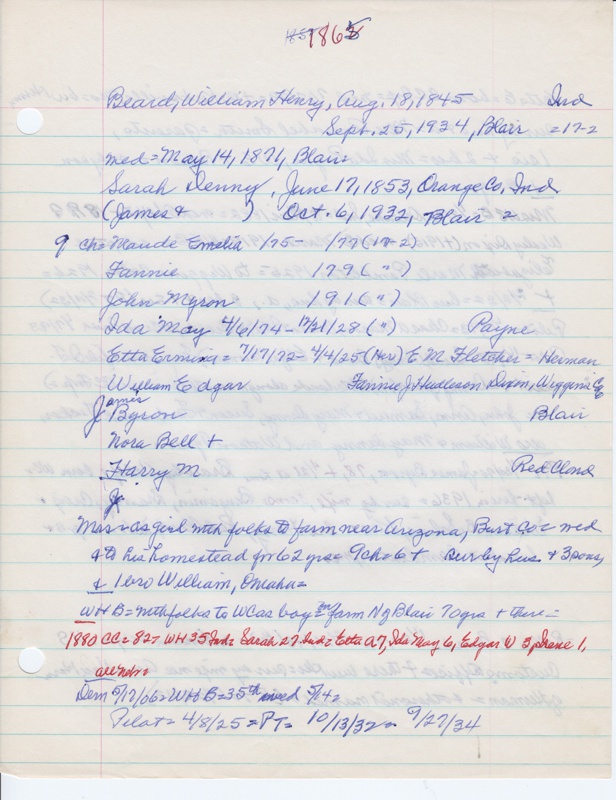 1865
Beard, William Henry, Aug. 18, 1845 Ind
Sept. 25, 1934, Blair =17-2
med = May 14, 1871, Blair=
Sarah Denny, June 17, 1853, Orange Co, Ind
(James & ) Oct. 6, 1932, Blair =
9 ch= Maude Emelia /75- /77 (17-2)
Fannie 179 (")
John Myron 191 (")
Ida May 4/6/74 - 12/21/28 (") Payne
Etta Ermina = 7/17/72 - 4/4/25 (Her) E M Fletcher = Herman
William Edgar Fannie J Hudleson Dixon, Wiggins
James Byron Blair
Nora Bell +
Harry M Red Cloud
Mrs = as girl with folks to farm near Arizona, Burt Co = med
& to his homestead for 62 yrs = 9 ch = 6 + surby hus. & 3 sons,
& 1 bro William, Omaha=
WHB= with folks to WC as boy = on farm N of Blair 70 yrs + there=
1880 CC= 82= WH 35 Ind= Sarah 27 Ind= Etta A 7, Ida May 6, Edgar W 3, 1,
all neb=
Dem 5/17/06= WHB= 35th med 5/14=
Pilot= 4/8/25 = PT= 10/13/32= 9/27/34